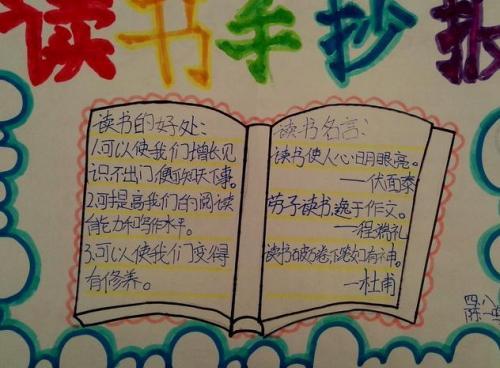 读书手抄报
读书的好处：
1.可以使我们增长见
识.不出门,便能知天下事。
2.可提高我们的阅读
能力和写作水平。
3.可以使我们变得
有修养。
读书名言：
读书使人心明眼亮。
——伏面泰
劳于读书,逸于作文。
—程端礼
读书破万卷下笔如有神。
—杜甫
四.八
陈一